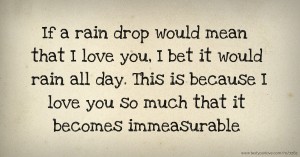 If a rain drop would mean
that I love you, I bet it would
rain all day. This is because I
love you so much that it
becomes immeasurable